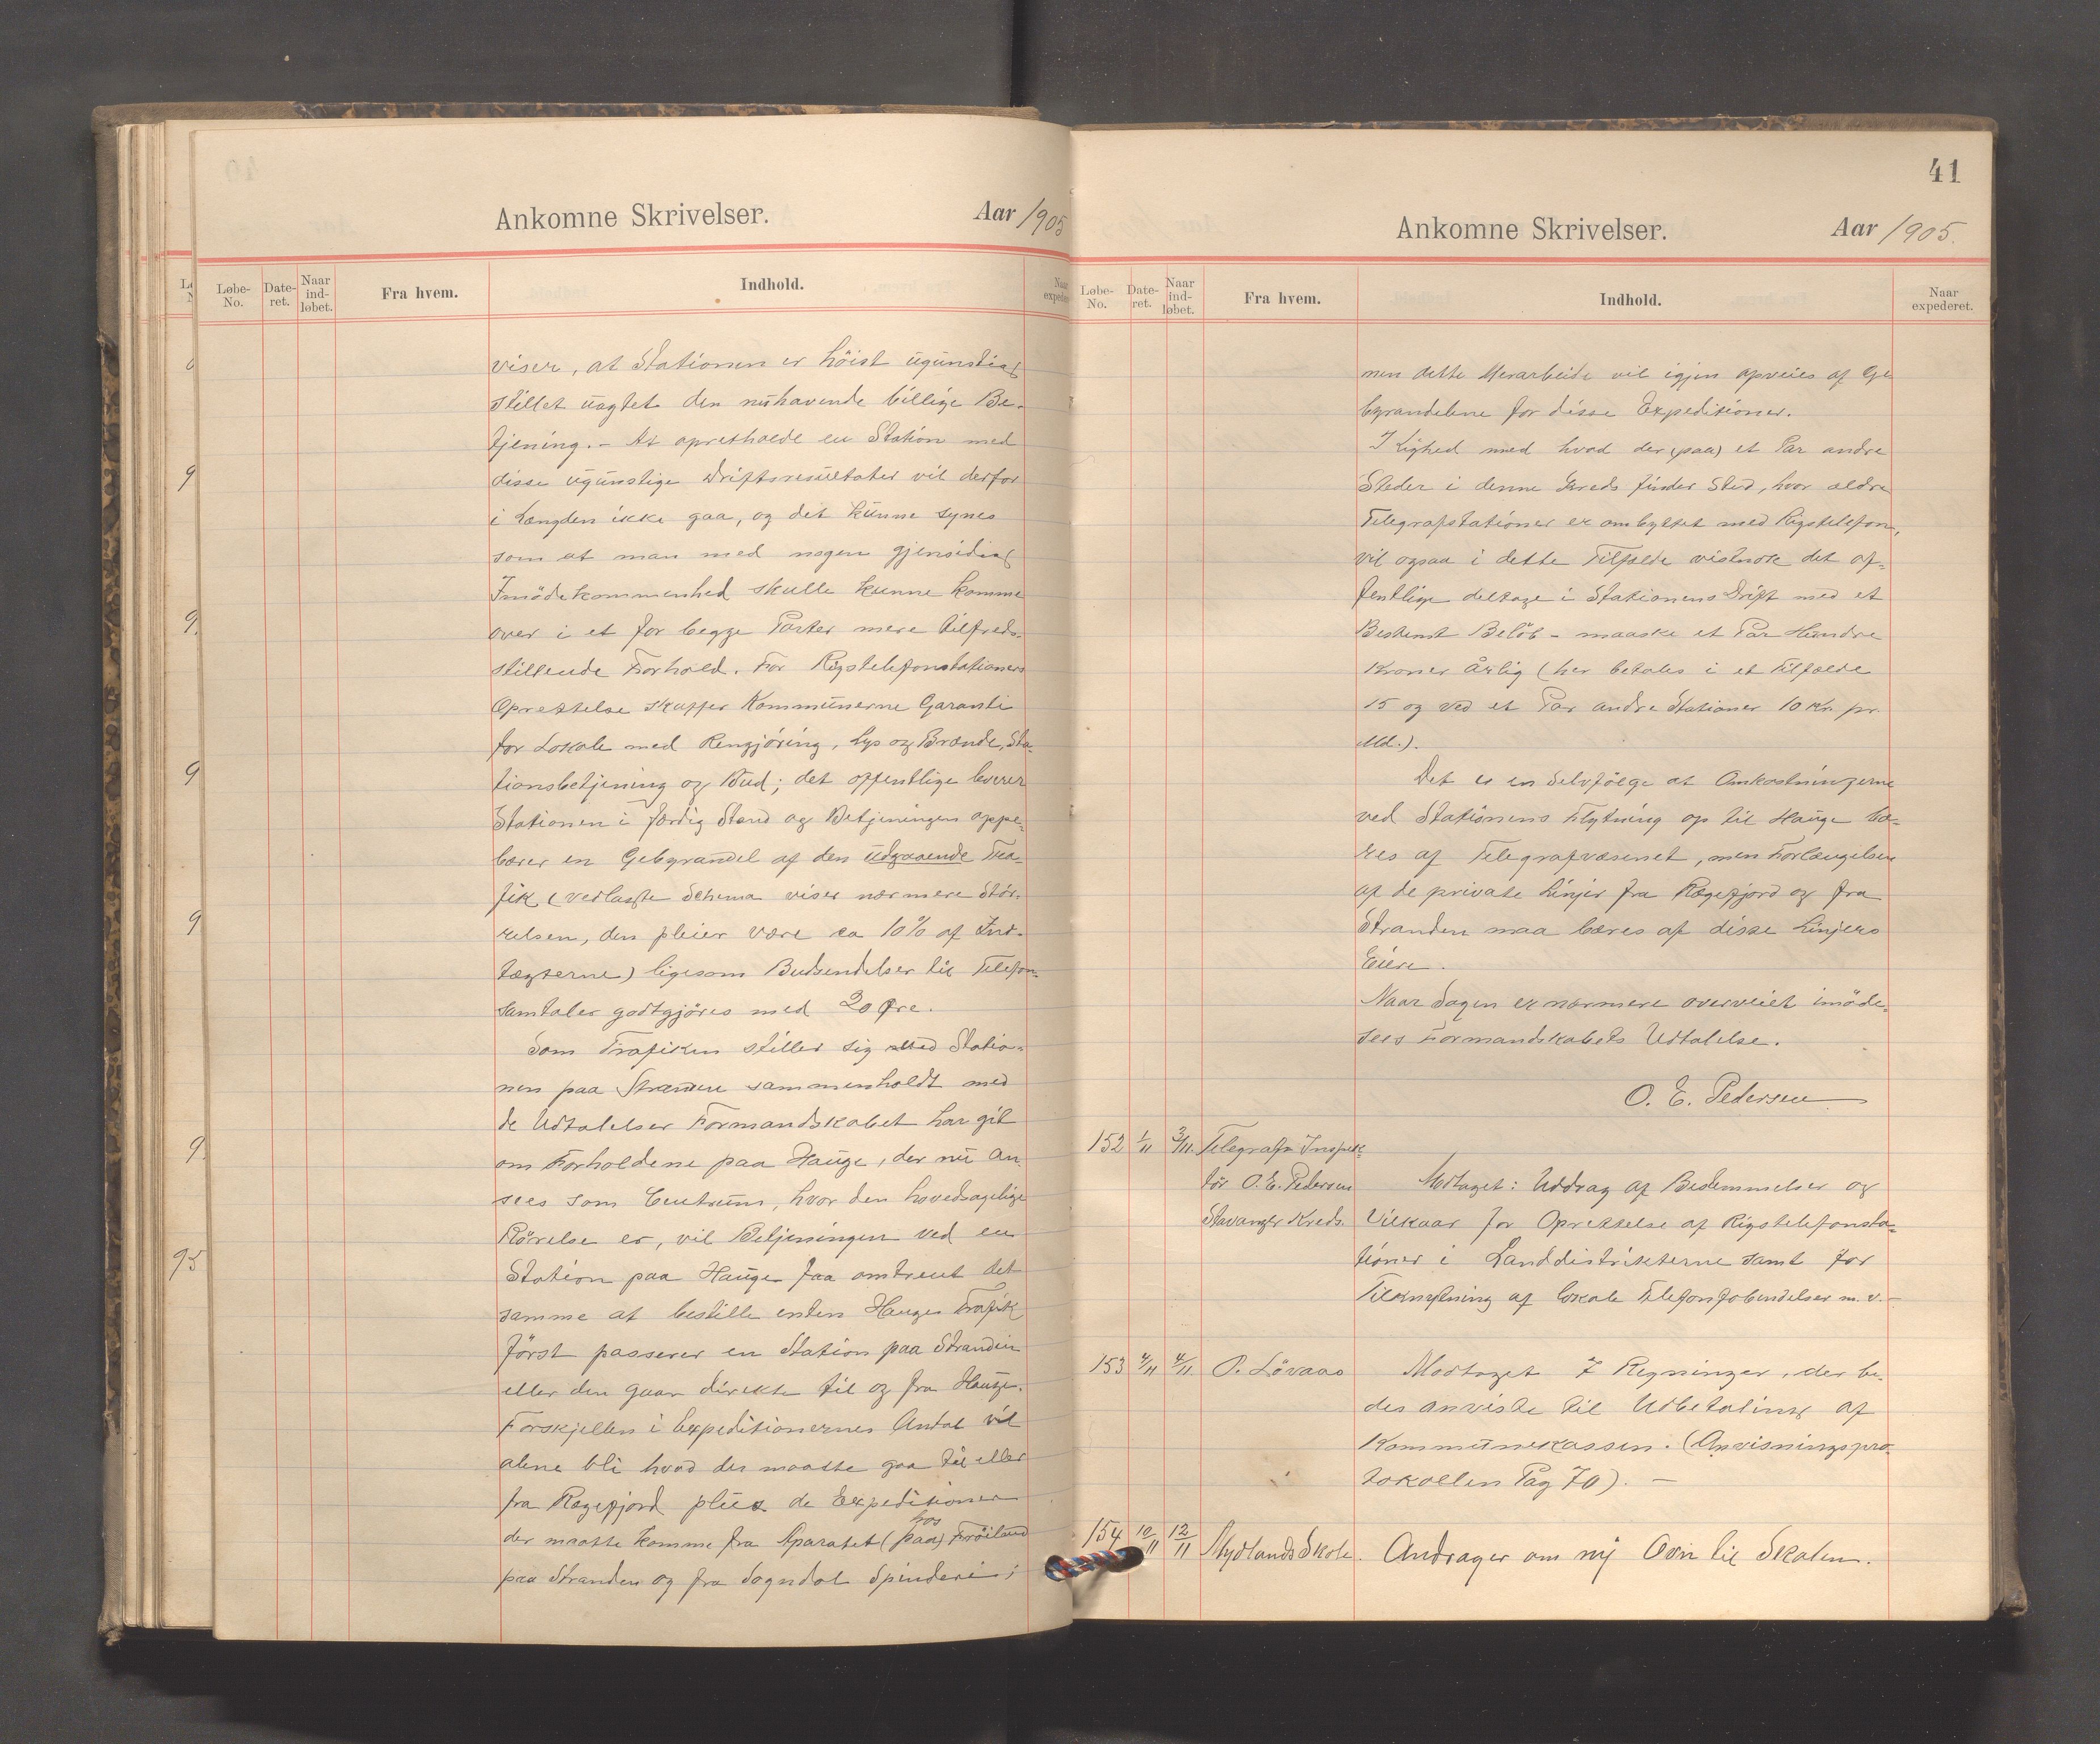 Ankomne Skrivelser. Aar 1905
Løbe-No. Date-ret. Naar ind-løbet. Fra hvem. Indhold. Naar expederet.
viser, at Stationen er höist ugunstig
stillet uagtet den nuhavende billige Be-
tjening. – At opretholde en Station med
disse ugunstige Driftsresultater vil derfor
i Længden ikke gaa, og det kunne synes
som at man med nogen gjensidig
Imödekommenhed skulle kunne komme
over i et for begge Parter mere tilfreds-
stillende Forhold. For Rigstelefonstationers
Oprettelse skaffer Kommunerne Garanti
for Lokale med Rengjöring, Lys og Brænde, Sta-
tionsbetjening og Bud; det offentlige leverer
Stationen i færdig Stand og Betjeningen oppe-
bærer en Gebyrandel af den udgaaende Tra-
fik (vedlagte Schema viser nærmere Stör-
relsen, den pleier være ca 10% af Ind-
tægterne) ligesom Budsendelser til Telefon-
samtaler godtgjöres med 20 Øre.
Som Trafiken stiller sig med Statio-
nen paa Stranden sammenholdt med
de Udtalelser Formandskabet har git
om Forholdene paa Hauge, der nu an-
sees som Centrum, hvor den hovedsagelige
Rörelse er, vil Betjeningen ved en
Station paa Hauge faa omtrent det
samme at bestille enten Hauges Trafik
först passerer en Station paa Stranden
eller den gaar direkte til og fra Hauge.
Forskjellen i Expeditionernes Antal vil
alene bli hvad der maatte gaa til eller
fra Rægefjord plus de Expeditioner
hos
der maatte komme fra Aparatet (paa) Fröiland
paa Stranden og fra Sogndal Spinderi;
41
Ankomne Skrivelser. Aar 1905.
Løbe-No. Date-ret. Naar ind-løbet. Fra hvem. Indhold. Naar expederet.
men dette Merarbeide vil igjen opveies af Ge
byrandelene for disse Expeditioner.
I Lighed med hvad der (paa) et Par andre
Steder i denne Kreds finder Sted, hvor ældre
Telegrafstationer er ombyttet med Rigstelefon,
vil ogsaa i dette Tilfælde vistnok det of-
fentlige deltage i Stationens Drift med et
Bestemt Belöb – maaske et Par Hundre
Kroner årlig (her betales i et Tilfælde
15 og ved et Par andre Stationer 10 Kr. pr.
Md.).
Det er en Selvfölge at Omkostningerne
ved Stationens Flytning op til Hauge bæ-
res af Telegrafvæsenet, men Forlængelsen
af de private Linjer fra Rægefjord og fra
Stranden maa bæres af disse Linjers
Eiere.
Naar Sagen er nærmere overveiet imöde-
sees Formandskabets Udtalelse.
O. E. Pedersen
152 1/11 3/11. Telegraf Inspek-
tör O. E. Pedersen Modtaget: Uddrag af Bestemmelser og
Stavanger Kreds. Vilkaar for Oprettelse af Rigstelefonsta-
tioner i Landdistrikterne samt for
Tilknytning af lokale Telefonfobindelser m. v. –
153 4/11 4/11. P. Lövaas Modtaget 7 Regninger, der be-
des anviste til Udbetaling af
Kommunekassen. (Anvisningspro-
tokollen Pag 70). –
154 10/11 12/11 Mydlands Skole. Andrager om ny Ovn til Skolen.